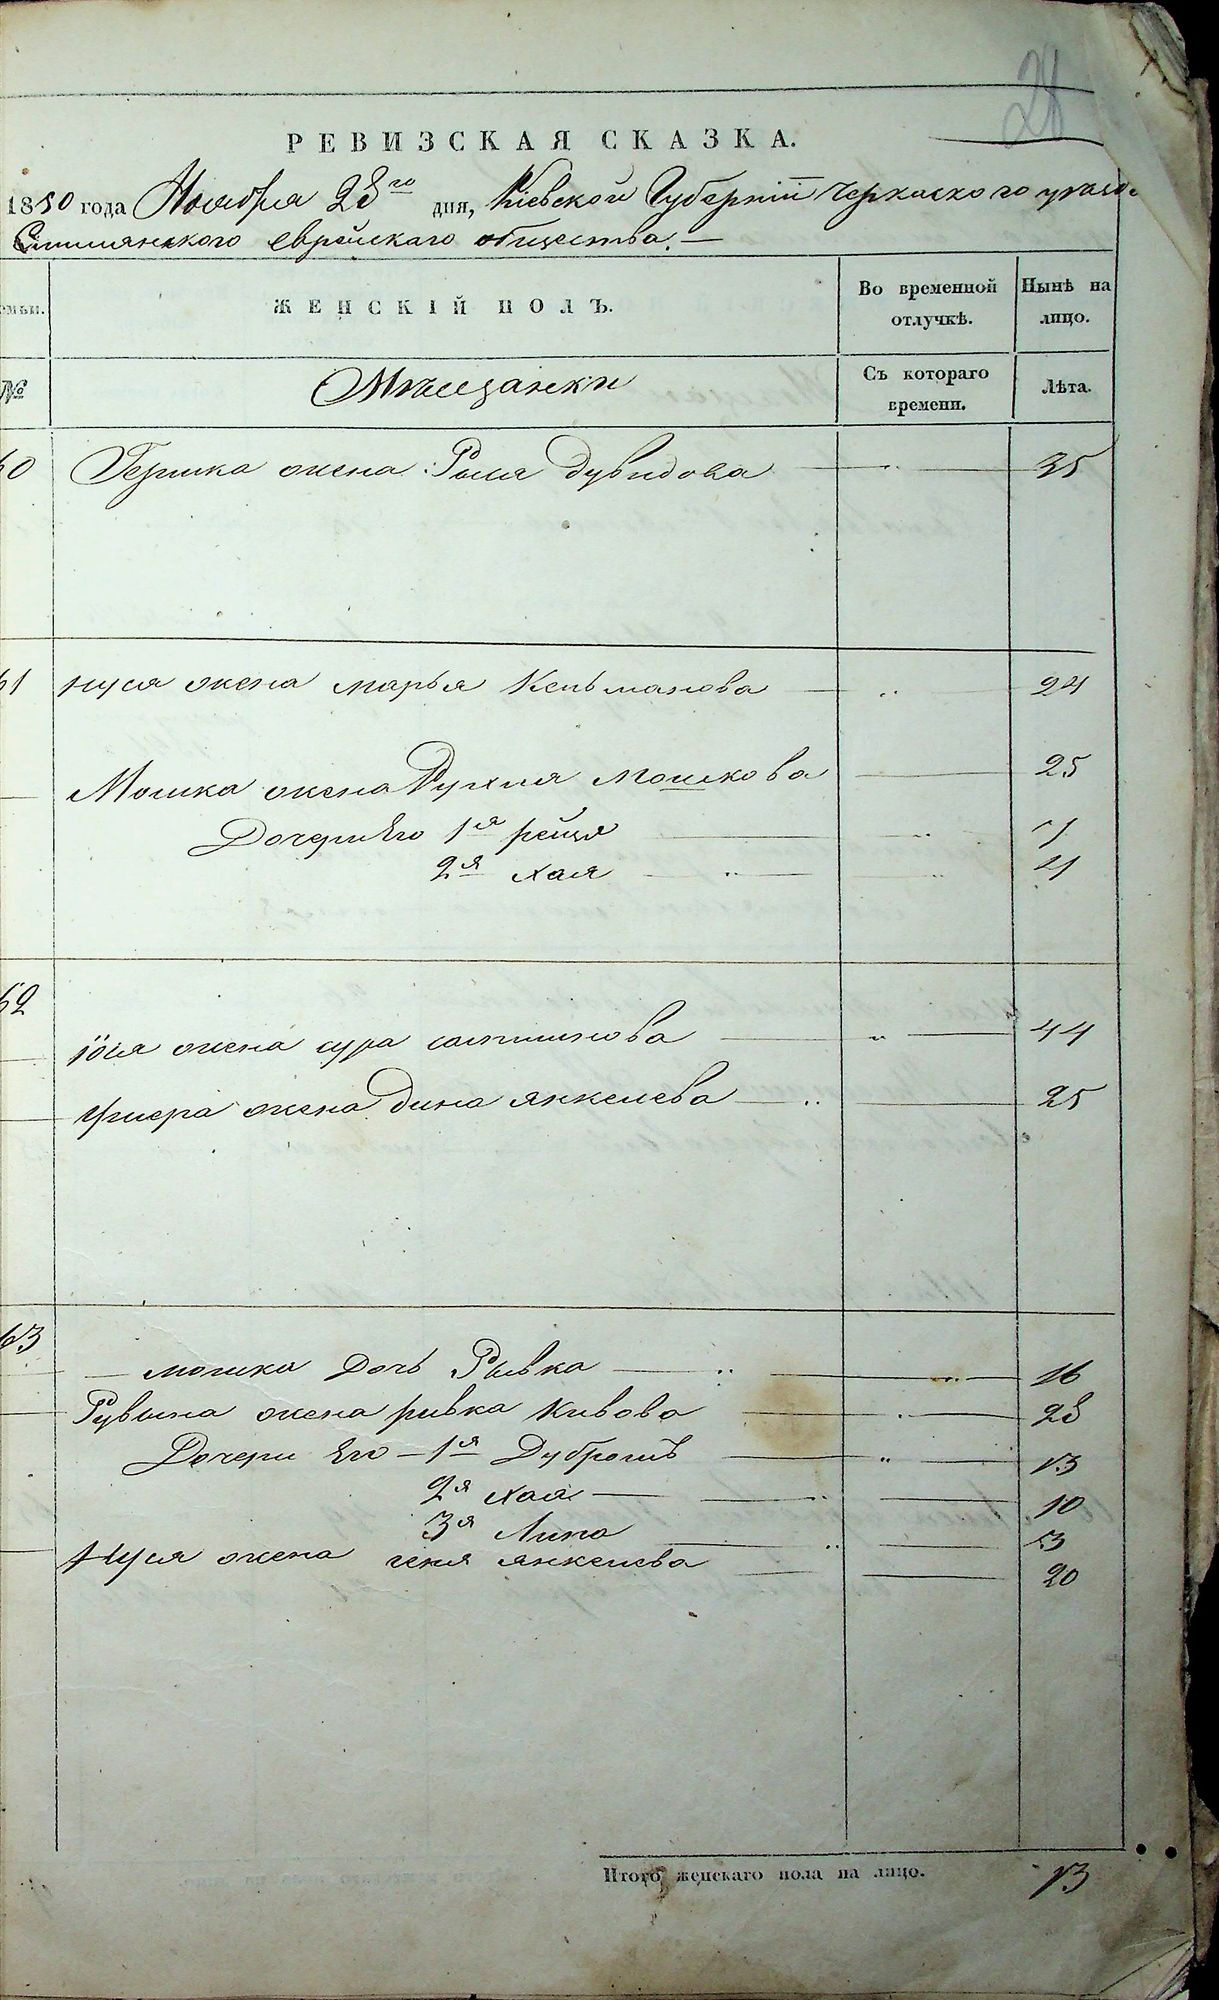 28
РЕВИЗСКАЯ СКАЗКА.
1850 года Ноября 28го дня, Кіевской Губерніи Черкаского уезда
Смелянского еврейскаго общества. —
емьи. ЖЕНСКІЙ ПОЛЪ. Во временной отлучкѣ. Нынѣ на лицо.
№ Мѣщанки Съ котораго времени. Лѣта.
60 жена Рыся Дувидова — „ — 35
61 Нуся жена марья Кельманова — „ — 24
Мошка жена Рухля Мошкова — 25
Дочери Его 1я рейця — „ — 7
2я хая — „ — „ 4
62
жена сура — „ — 44
жена Дина янкелева — „ — 25
63
— мошка Дочь Рывка — „ — „ — 16
Рувына жена ривка Кивова — „ — 28
Дочери Его — 1я — „ — 13
2я хая — „ — 10
3я — „ — 3
Нуся жена геня янкелева — 20
Итого женскаго пола на лицо. 13